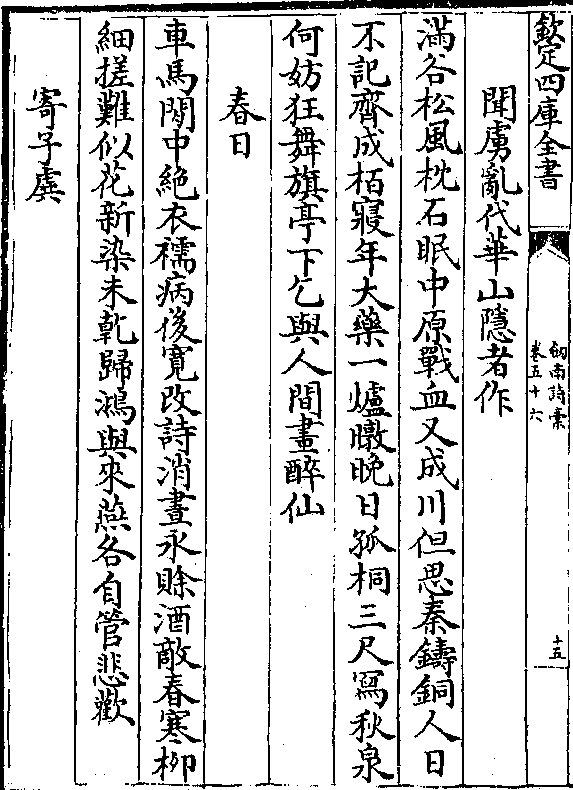 欽定四庫全書
劒南詩稾
卷五十六
十五
聞虜亂代華山隱者作
滿谷松風枕石眠中原戰血又成川但思秦鑄銅人日
不記齊成栢寢年大藥一爐暾晩日孤桐三尺冩秋泉
何妨狂舞旗亭下乞與人間畫醉仙
春日
車馬閑中絶衣襦病後寛改詩消晝永賖酒敵春寒柳
細搓難似花新染未乾歸鴻與來燕各自管悲歡
寄子虡